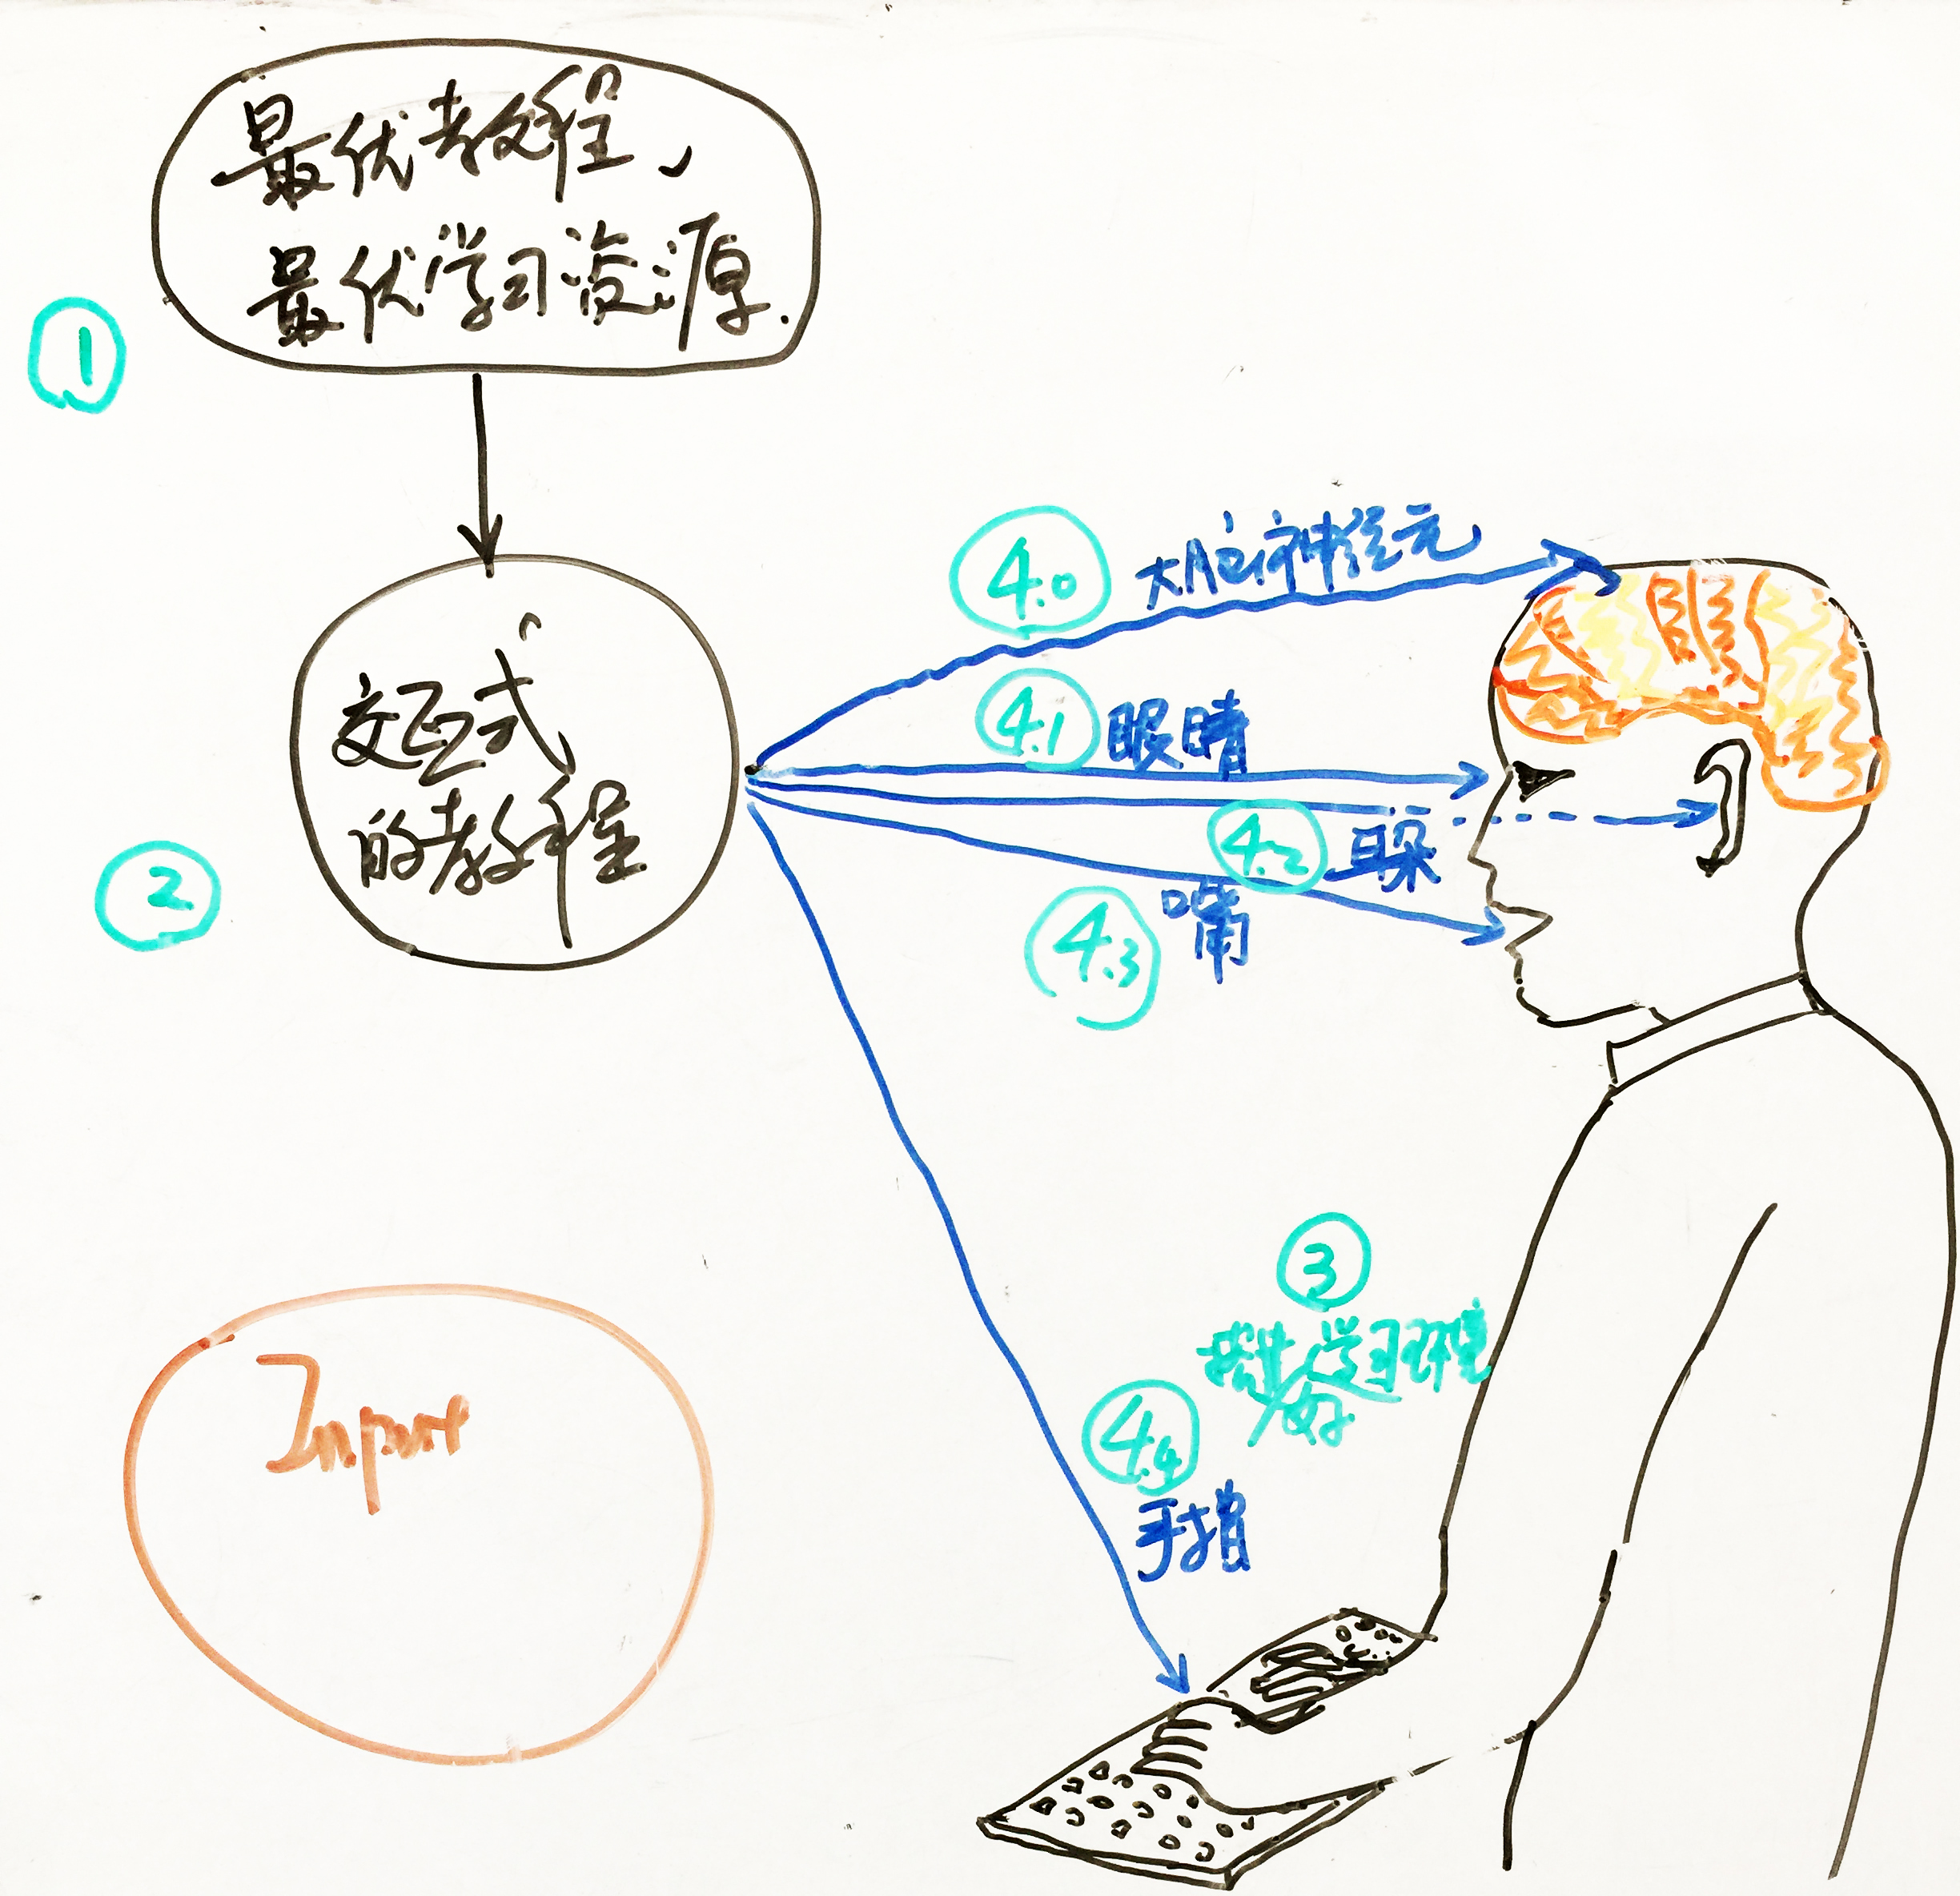 最优教程、
最优学习资源.
1
交互式
的教程
2
4.0 大脑神经元
4.1 眼睛
4.2 耳朵
4.3 嘴
3
学习环境
4.4
手指